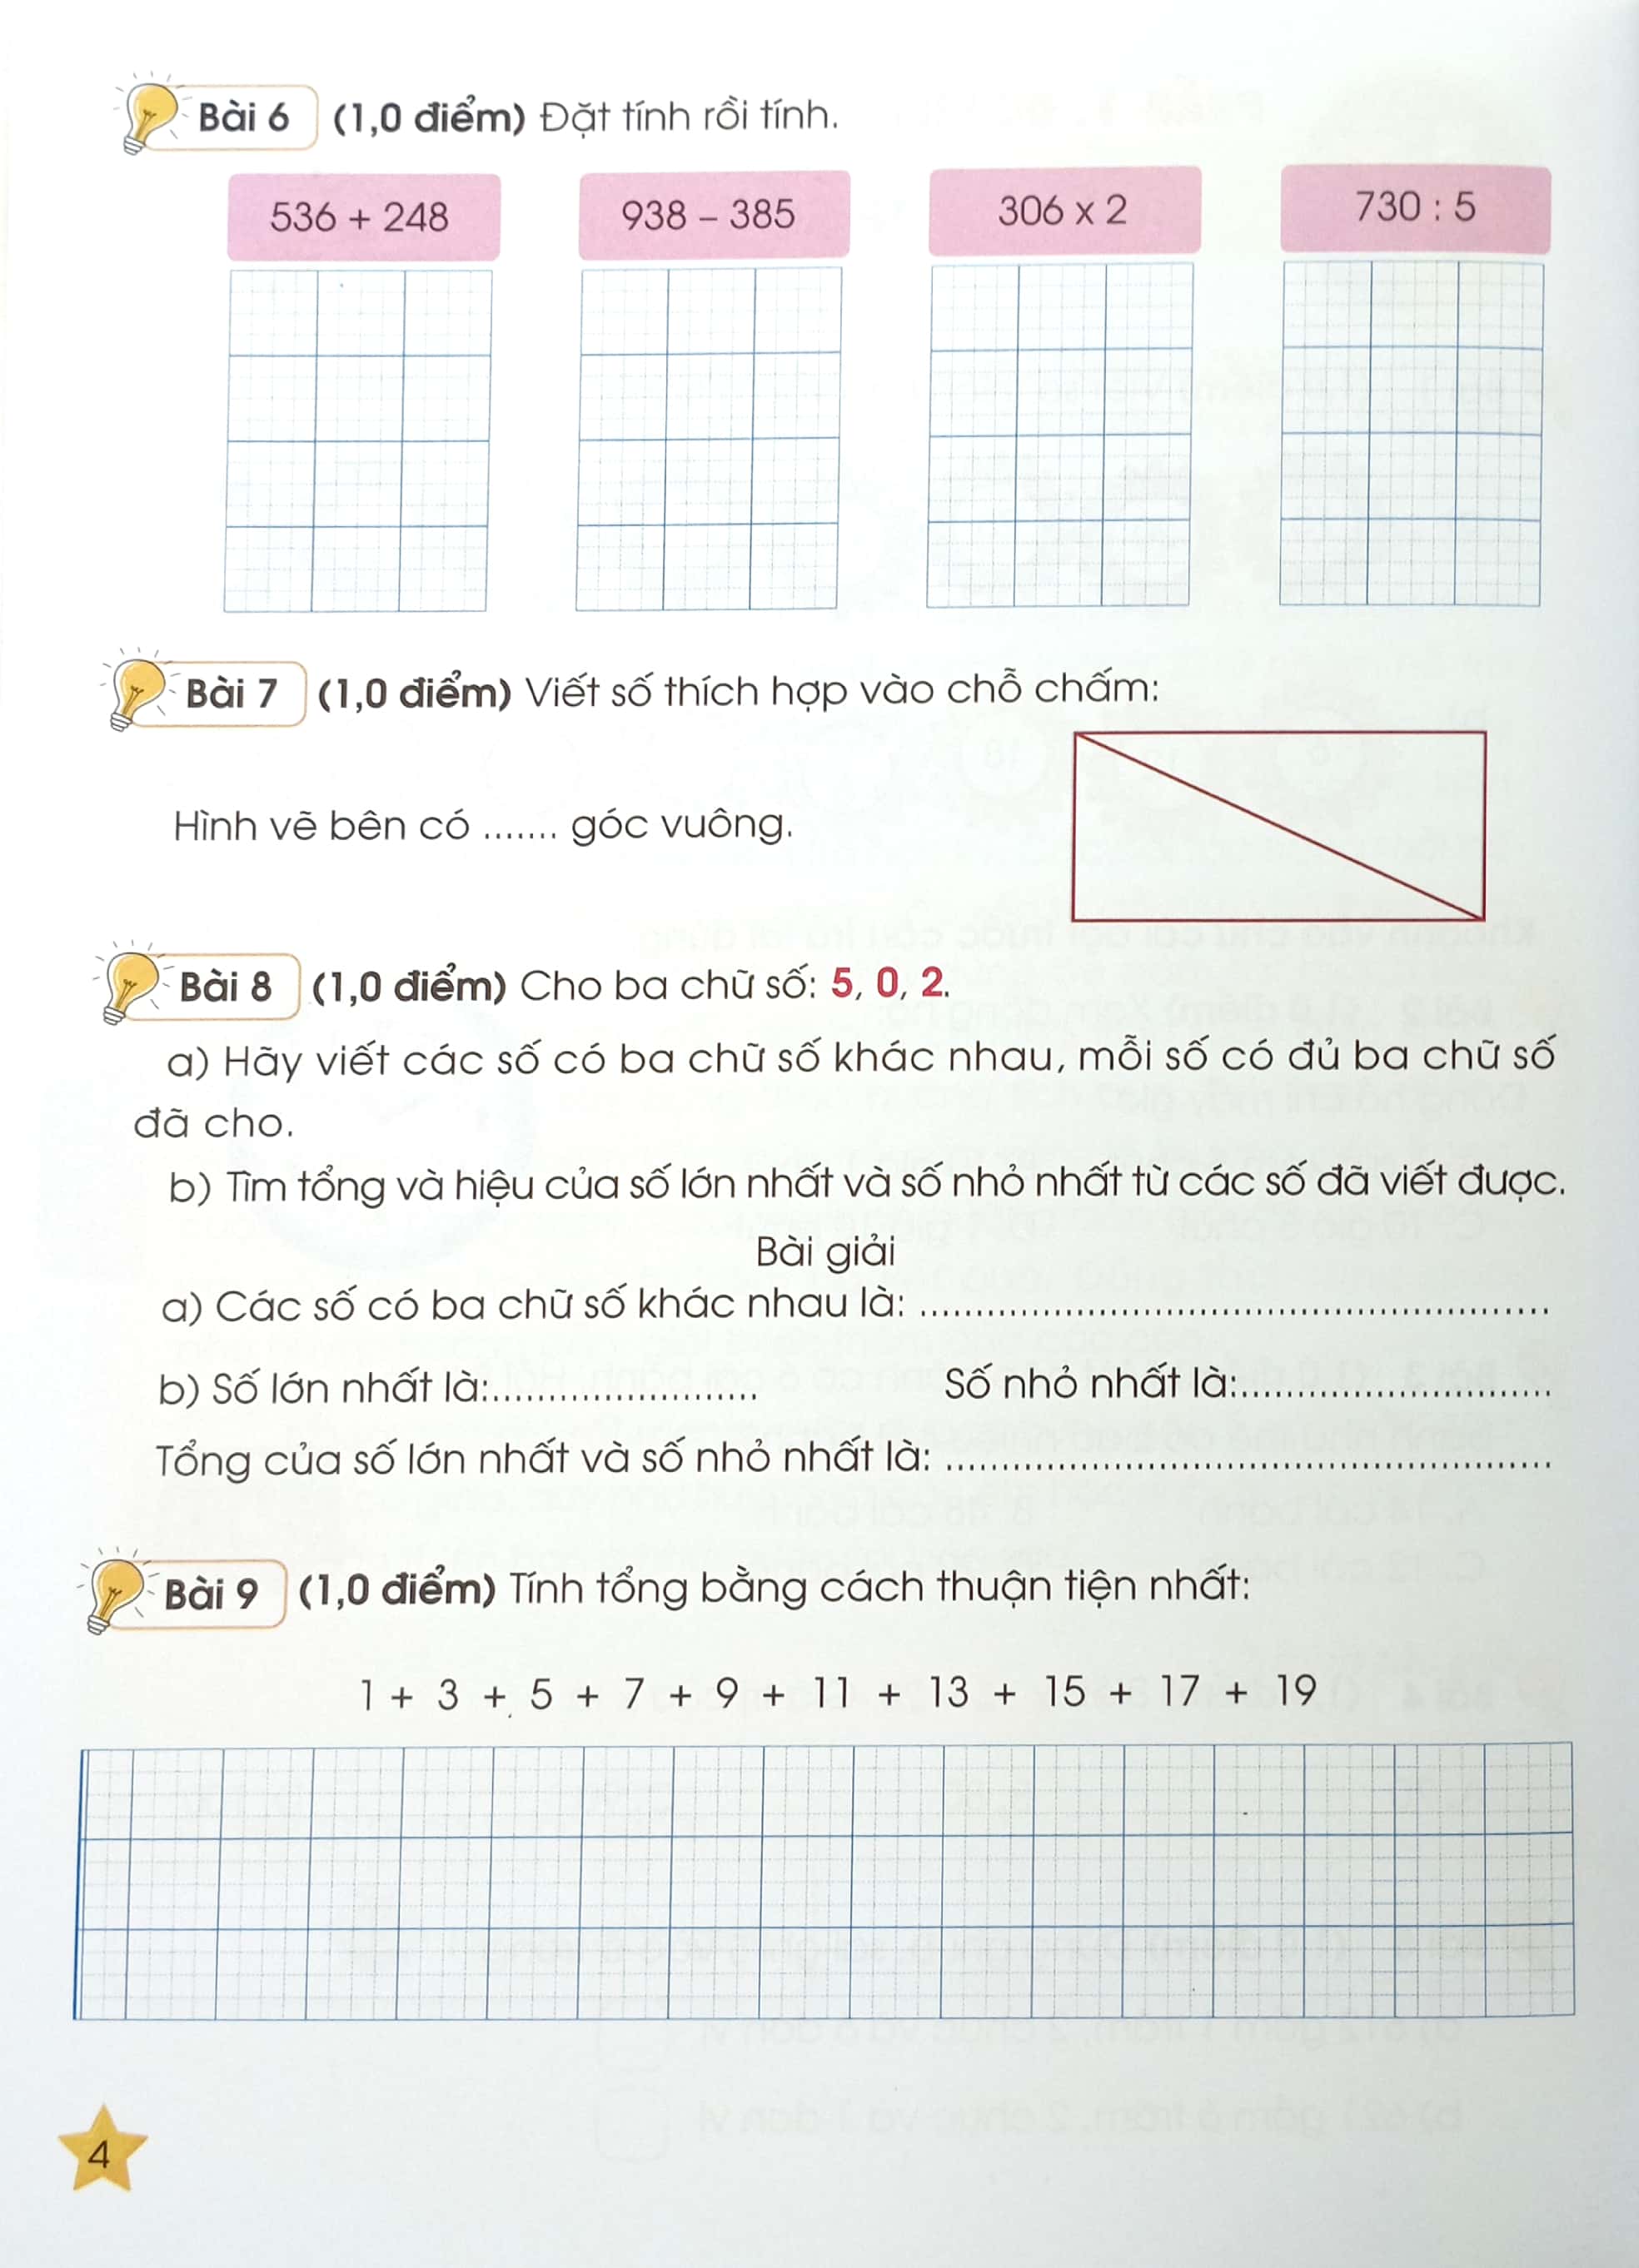 Bài 6 (1,0 điểm) Đặt tính rồi tính.
536 + 248 938 – 385 306 x 2 730 : 5
Bài 7 (1,0 điểm) Viết số thích hợp vào chỗ chấm:
Hình vẽ bên có ....... góc vuông.
Bài 8 (1,0 điểm) Cho ba chữ số: 5, 0, 2.
a) Hãy viết các số có ba chữ số khác nhau, mỗi số có đủ ba chữ số
đã cho.
b) Tìm tổng và hiệu của số lớn nhất và số nhỏ nhất từ các số đã viết được.
Bài giải
a) Các số có ba chữ số khác nhau là: ........................................................
b) Số lớn nhất là:........................ Số nhỏ nhất là:............................
Tổng của số lớn nhất và số nhỏ nhất là: ......................................................
Bài 9 (1,0 điểm) Tính tổng bằng cách thuận tiện nhất:
1 + 3 + 5 + 7 + 9 + 11 + 13 + 15 + 17 + 19
4